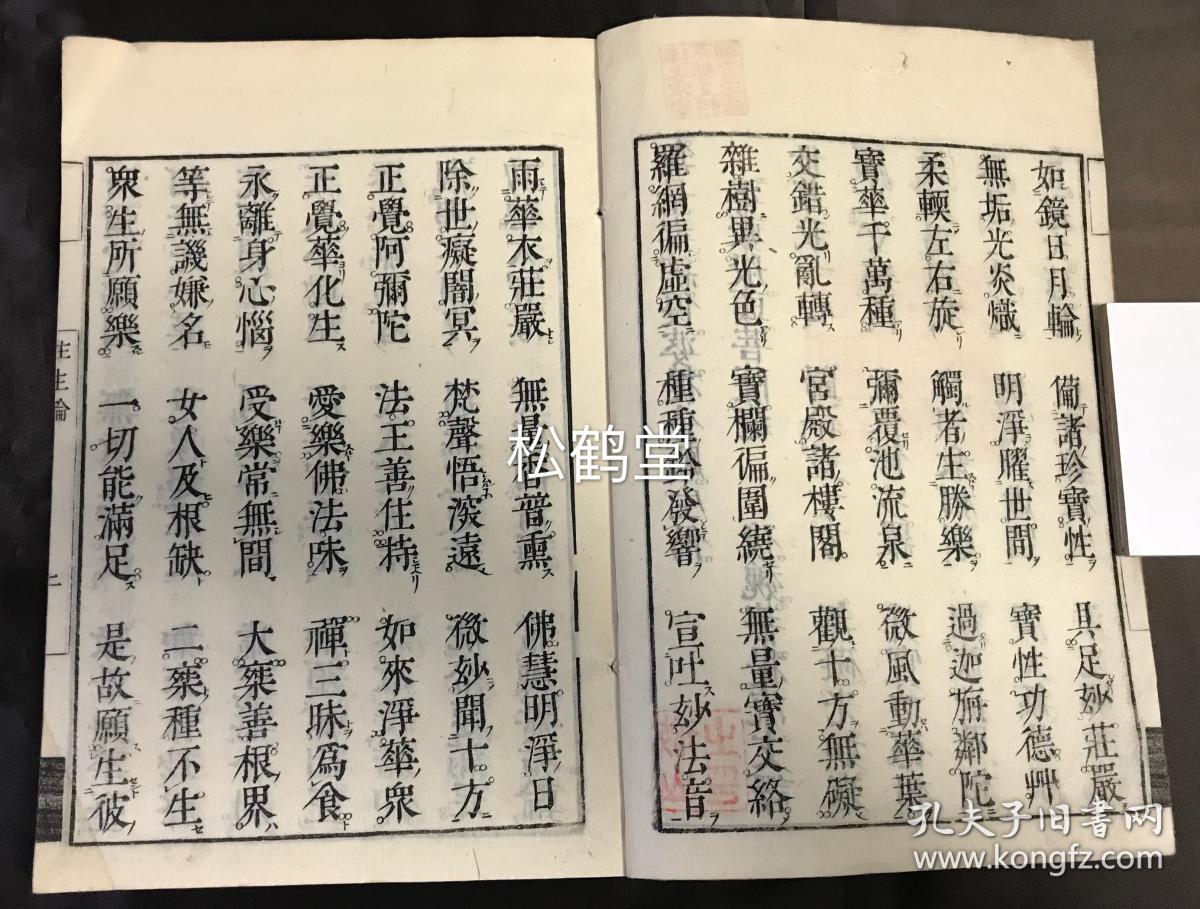 如鏡日月輪 備諸珍寶性 具足妙莊嚴
無垢光炎熾 明淨曜世間 寶性功德艸
柔輭左右旋 觸者生勝樂 過迦旃鄰陀
寶華千萬種 彌覆池流泉 微風動華葉
交錯光亂轉 宮殿諸樓閣 觀十方無礙
雜樹異光色 寶欄徧圍繞 無量寶交絡
羅網徧虛空 種種鈴發響 宣吐玅法音
雨華衣莊嚴 無量香普熏 佛慧明淨日
除世癡闇冥 梵聲悟深遠 微玅聞十方
正覺阿彌陀 法王善住持 如來淨華衆
正覺華化生 愛樂佛法味 禪三昧爲食
永離身心惱 受樂常無間 大乘善根界
等無譏嫌名 女人及根缺 二乘種不生
衆生所願樂 一切能滿足 是故願生彼
往生論
二
松鹤堂
孔夫子旧书网
www.kongfz.com